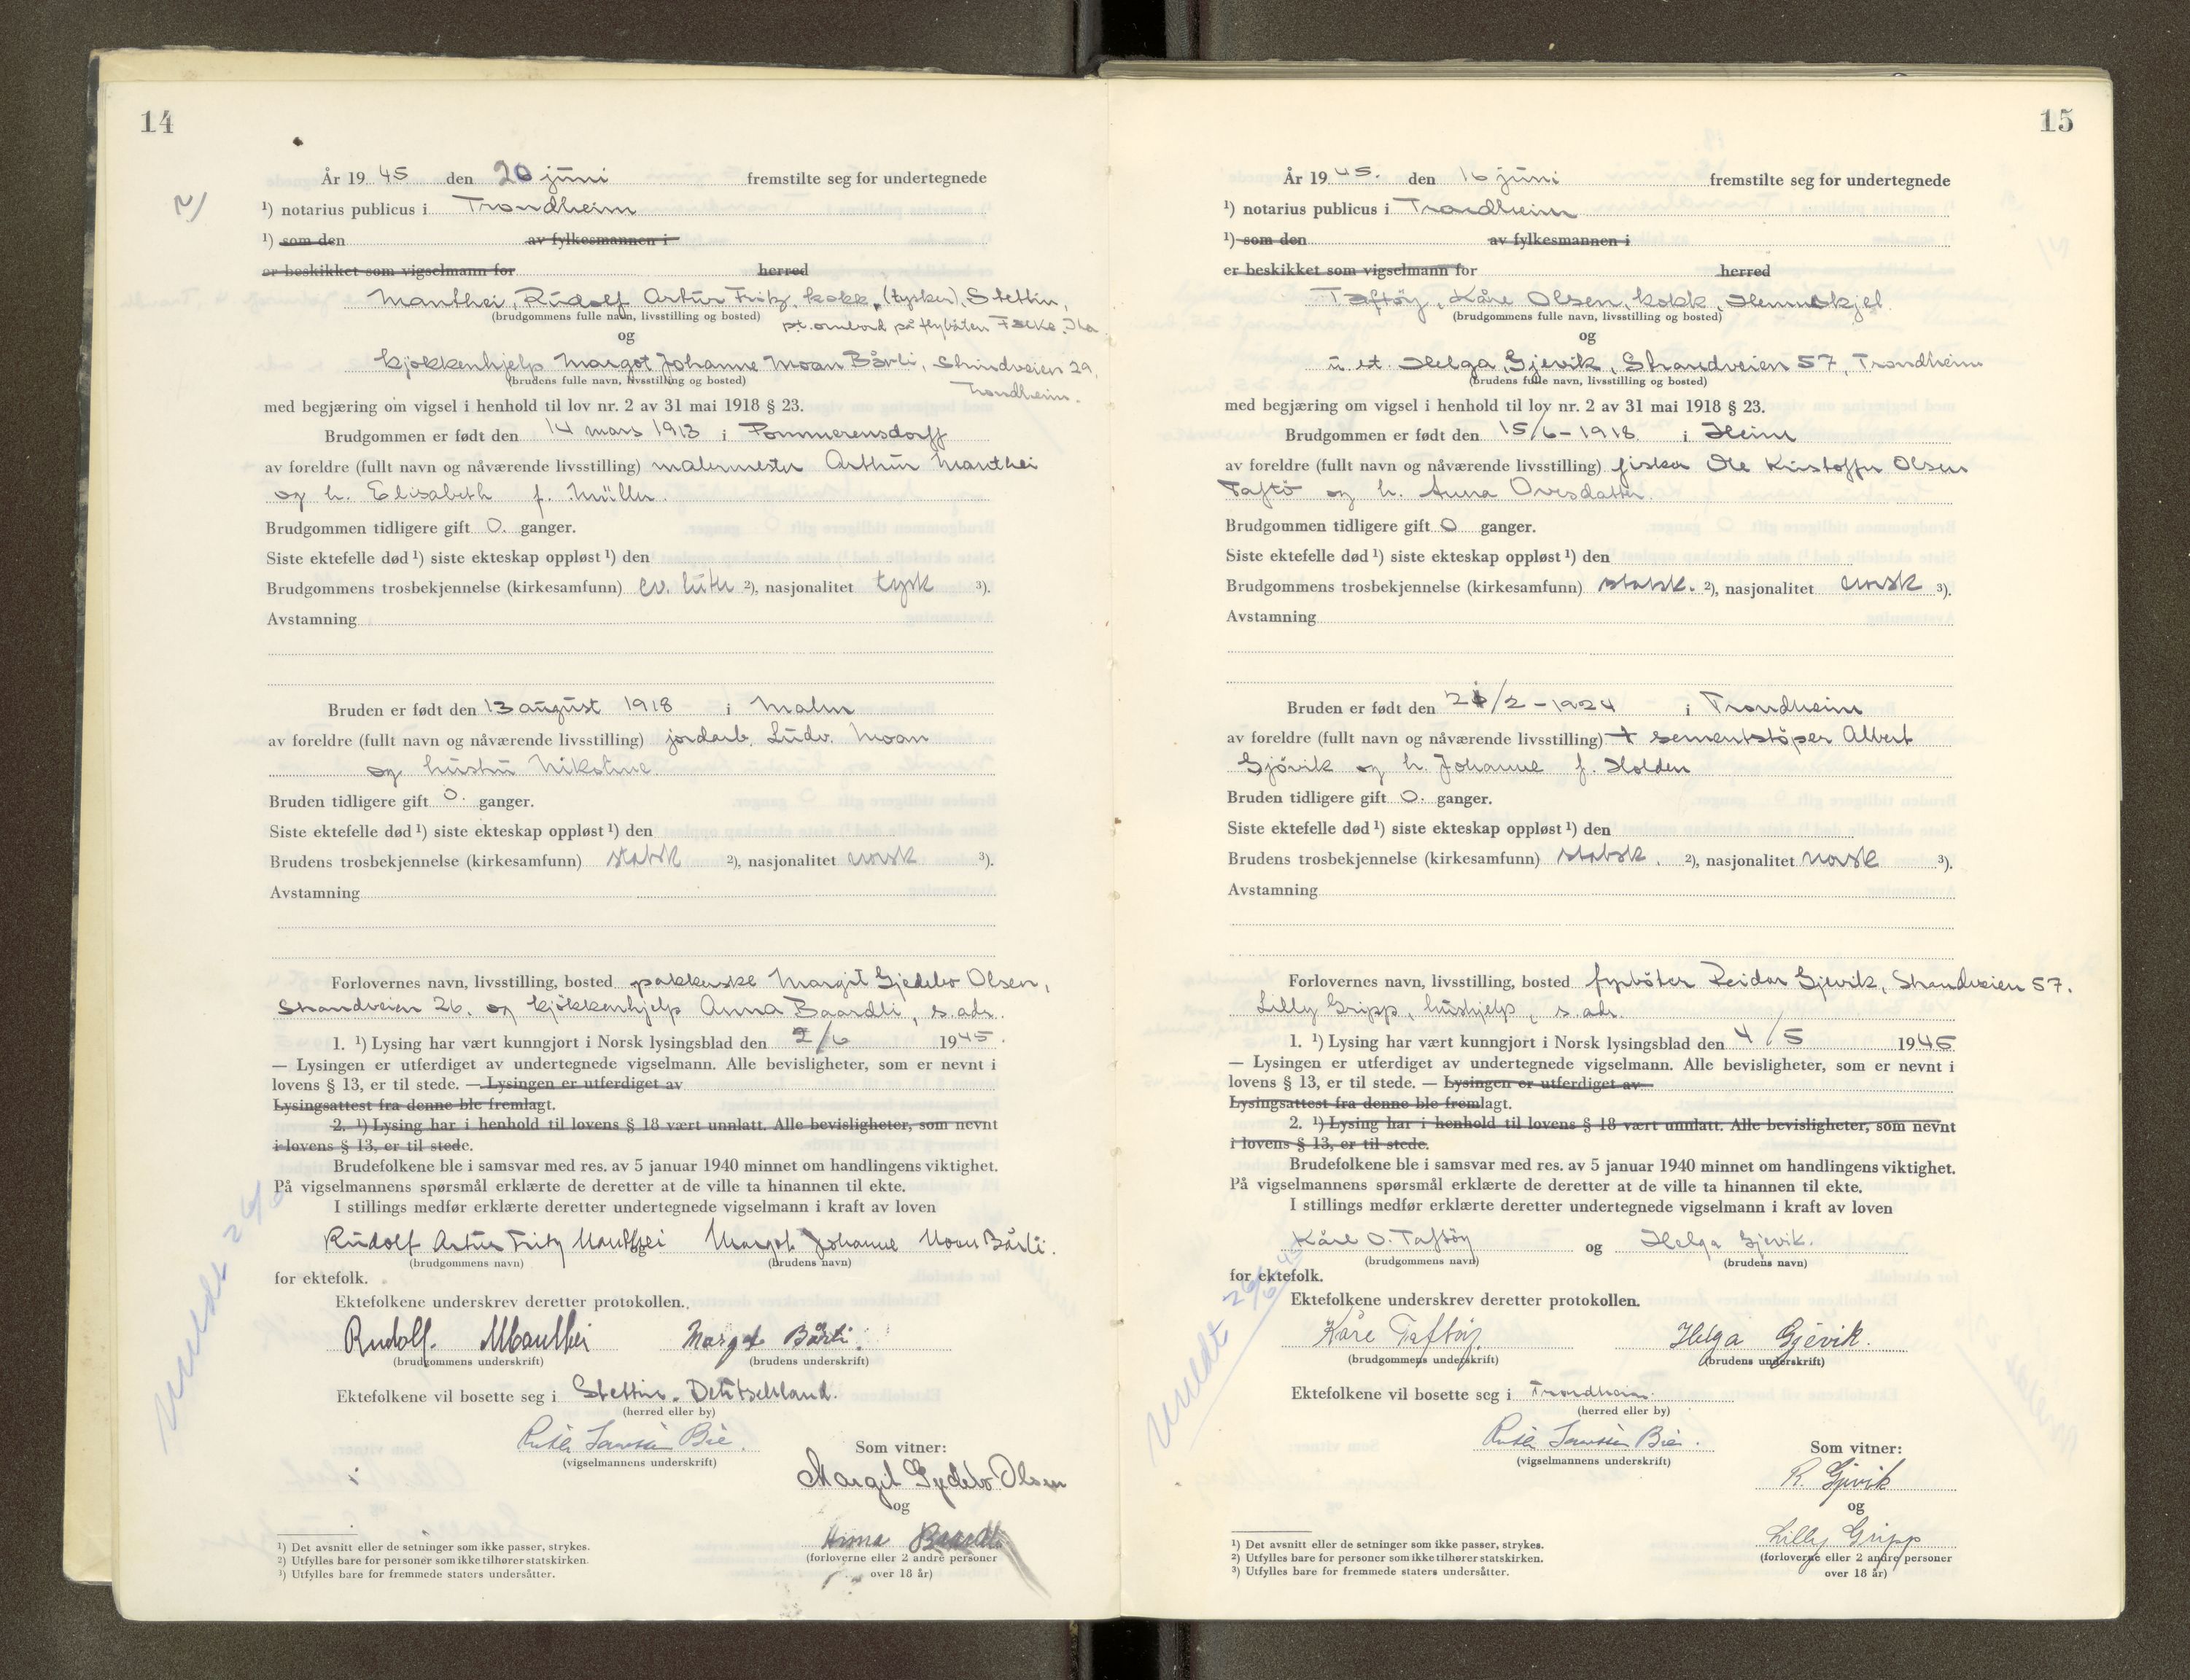 14
År 19 45 den 20 juni fremstilte seg for undertegnede
2)
¹) notarius publicus i Trondheim
¹) som den av fylkesmannen i
er beskikket som vigselmann for herred
Manthei, Rudolf Artur Fritz, kokk, (tysker), Stettin,
(brudgommens fulle navn, livsstilling og bosted) pt. ombord på flybåten Falke, Ila
og
kjøkkenhjelp Margot Johanne Moan Bårli, Strindveien 29,
(brudens fulle navn, livsstilling og bosted) Trondheim.
med begjæring om vigsel i henhold til lov nr. 2 av 31 mai 1918 § 23.
Brudgommen er født den 14 mars 1913 i Pommerensdorff
av foreldre (fullt navn og nåværende livsstilling) malermester Arthur Manthei
og h. Elisabeth f. Müller.
Brudgommen tidligere gift 0. ganger.
Siste ektefelle død ¹) siste ekteskap oppløst ¹) den
Brudgommens trosbekjennelse (kirkesamfunn) ev. luth ²), nasjonalitet tysk ³).
Avstamning
Bruden er født den 13 august 1918 i Malm
av foreldre (fullt navn og nåværende livsstilling) jordarb. Ludv. Moan
og hustru Nikoline.
Bruden tidligere gift 0. ganger.
Siste ektefelle død ¹) siste ekteskap oppløst ¹) den
Brudens trosbekjennelse (kirkesamfunn) statsk ²), nasjonalitet norsk ³).
Avstamning
Forlovernes navn, livsstilling, bosted pakkerske Margit Gjedebo Olsen,
Strandveien 26. og kjøkkenhjelp Anna Baardli, s. adr.
1. ¹) Lysing har vært kunngjort i Norsk lysingsblad den 2/6 1945.
— Lysingen er utferdiget av undertegnede vigselmann. Alle bevisligheter, som er nevnt i
lovens § 13, er til stede. — Lysingen er utferdiget av
Lysingsattest fra denne ble fremlagt.
2. ¹) Lysing har i henhold til lovens § 18 vært unnlatt. Alle bevisligheter, som nevnt
i lovens § 13, er til stede.
Brudefolkene ble i samsvar med res. av 5 januar 1940 minnet om handlingens viktighet.
På vigselmannens spørsmål erklærte de deretter at de ville ta hinannen til ekte.
I stillings medfør erklærte deretter undertegnede vigselmann i kraft av loven
Rudolf Artur Fritz Manthei Margot Johanne Moan Bårli.
(brudgommens navn) (brudens navn)
for ektefolk.
Ektefolkene underskrev deretter protokollen.
Rudolf. Manthei Margot Bårli.
(brudgommens underskrift) (brudens underskrift)
Ektefolkene vil bosette seg i Stettin. Deutschland.
(herred eller by)
Meldt 26/6
Bie.
(vigselmannens underskrift)
Som vitner:
Margit Gjedebo Olsen
og
Anna Baardli
(forloverne eller 2 andre personer
over 18 år)
¹) Det avsnitt eller de setninger som ikke passer, strykes.
²) Utfylles bare for personer som ikke tilhører statskirken.
³) Utfylles bare for fremmede staters undersåtter.
15
År 19 45. den 16 juni fremstilte seg for undertegnede
¹) notarius publicus i Trondheim
¹) som den av fylkesmannen i
er beskikket som vigselmann for herred
Taftöy, Kåre Olsen, kokk, Hemnskjel
(brudgommens fulle navn, livsstilling og bosted)
og
u. st. Helga Gjevik, Strandveien 57, Trondheim
(brudens fulle navn, livsstilling og bosted)
med begjæring om vigsel i henhold til lov nr. 2 av 31 mai 1918 § 23.
Brudgommen er født den 15/6 - 1918 i Heim
av foreldre (fullt navn og nåværende livsstilling) fisker Ole Kristoffer Olsen
Taftö og h. Anna Ovesdatter.
Brudgommen tidligere gift 0 ganger.
Siste ektefelle død ¹) siste ekteskap oppløst ¹) den
Brudgommens trosbekjennelse (kirkesamfunn) statsk. ²), nasjonalitet norsk ³).
Avstamning
Bruden er født den 21/2 - 1924 i Trondheim
av foreldre (fullt navn og nåværende livsstilling) + sementstöper Albert
Gjövik og h. Johanne f. Holden
Bruden tidligere gift 0. ganger.
Siste ektefelle død ¹) siste ekteskap oppløst ¹) den
Brudens trosbekjennelse (kirkesamfunn) statsk. ²), nasjonalitet norsk ³).
Avstamning
Forlovernes navn, livsstilling, bosted fyrböter Reidar Gjevik, Strandveien 57.
Lilly Gripp, hushjelp, s. adr.
1. ¹) Lysing har vært kunngjort i Norsk lysingsblad den 4/5 1945
— Lysingen er utferdiget av undertegnede vigselmann. Alle bevisligheter, som er nevnt i
lovens § 13, er til stede. — Lysingen er utferdiget av
Lysingsattest fra denne ble fremlagt.
2. ¹) Lysing har i henhold til lovens § 18 vært unnlatt. Alle bevisligheter, som nevnt
i lovens § 13, er til stede.
Brudefolkene ble i samsvar med res. av 5 januar 1940 minnet om handlingens viktighet.
På vigselmannens spørsmål erklærte de deretter at de ville ta hinannen til ekte.
I stillings medfør erklærte deretter undertegnede vigselmann i kraft av loven
Kåre O. Taftöy og Helga Gjevik.
(brudgommens navn) (brudens navn)
for ektefolk.
Ektefolkene underskrev deretter protokollen.
Kåre Taftöy. Helga Gjevik.
(brudgommens underskrift) (brudens underskrift)
Ektefolkene vil bosette seg i Trondheim.
(herred eller by)
Meldt 26/6 45
Bie.
(vigselmannens underskrift)
Som vitner:
R. Gjevik
og
Lilly Gripp
(forloverne eller 2 andre personer
over 18 år)
¹) Det avsnitt eller de setninger som ikke passer, strykes.
²) Utfylles bare for personer som ikke tilhører statskirken.
³) Utfylles bare for fremmede staters undersåtter.